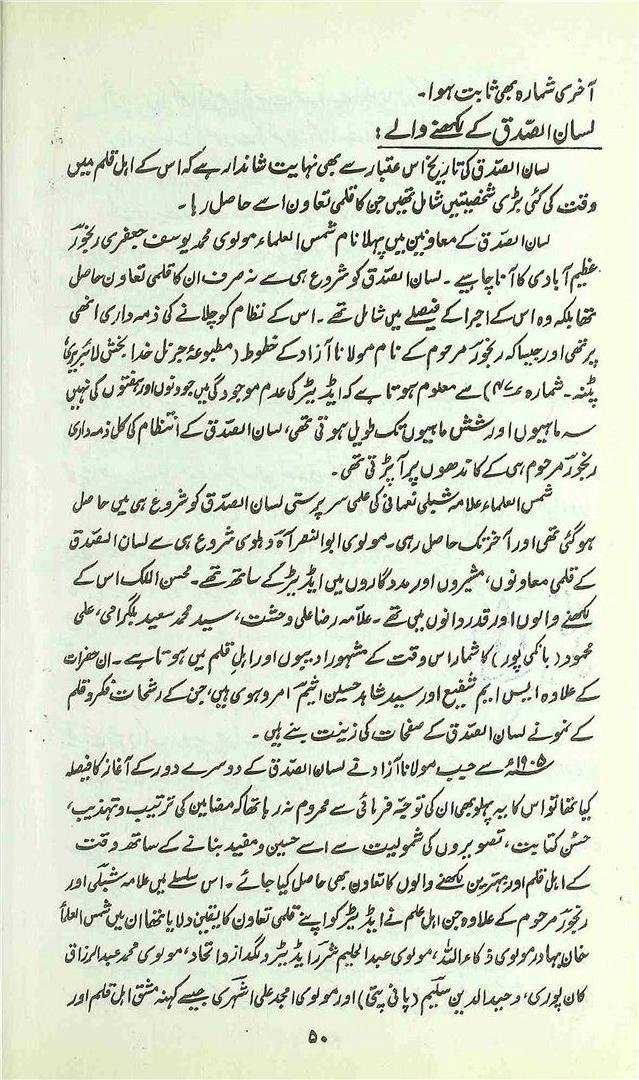 آخری شمارہ بھی ثابت ہوا۔
لسان الصدق کے لکھنے والے:
لسان الصدق کی تاریخ اس عتبار سے بھی نہایت شاندار ہے کہ اس کے اہل قلم میں
وقت کی کئی بڑی شخصیتیں شامل تھیں جن کا قلمی تعاون اسے حاصل رہا۔
لسان الصدق کے معاونین میں پہلا نام شمس العلماء مولوی محمد یوسف جعفری رنجورؔ
عظیم آبادی کا آنا چاہیے۔ لسان الصدق کو شروع ہی سے نہ صرف ان کا قلمی تعاون حاصل
تھا بلکہ وہ اس کے اجرا کے فیصلے میں شامل تھے۔ اس کے نظام کو چلانے کی ذمہ داری انھی
پر تھی اور جیسا کہ رنجورؔ مرحوم کے نام مولانا آزاد کے خطوط (مطبوعہ جرنل خدا بخش لائبریری
پٹنہ۔ شمارہ ۴۷ء) سے معلوم ہوتا ہے کہ ایڈیٹر کی عدم موجودگی میں جو دنوں اور ہفتوں کی نہیں
سہ ماہیوں اور شش ماہیوں تک طویل ہوتی تھی، لسان الصدق کے انتظام کی کل ذمہ داری
رنجورؔ مرحوم ہی کے کاندھوں پر آپڑتی تھی۔
شمس العلماء علامہ شبلی نعمانی کی علمی سرپرستی لسان الصدق کو شروع ہی میں حاصل
ہوگئی تھی اور آخر تک حاصل رہی۔ مولوی ابوالنصر آہؔ دہلوی شروع ہی سے لسان الصدق
کے قلمی معاونوں، مشیروں اور مددگاروں میں ایڈیٹر کے ساتھ تھے۔ محسن الملک اس کے
لکھنے والوں اور قدردانوں میں تھے۔ علامہ رضا علی وحشت، سید محمد سعید بلگرامی، علی
محمود (بانکی پور) کا شمار اس وقت کے مشہور ادیبوں اور اہل قلم میں ہوتا ہے۔ ان حضرات
کے علاوہ ایس ایم شفیع اور سید شاہد حسین اشیمؔ امروہوی ہیں، جن کے رشحات فکر و قلم
کے نمونے لسان الصدق کے صفحات کی زینت بنے ہیں۔
۱۹۰۵ء سے جب مولانا آزاد نے لسان الصدق کے دوسرے دور کے آغاز کا فیصلہ
کیا تھا تو اس کا یہ پہلو بھی ان کی توجہ فرمائی سے محروم نہ رہا تھا کہ مضامین کی ترتیب و تہذیب،
حسن کتابت، تصویروں کی شمولیت سے اسے حسین و مفید بنانے کے ساتھ وقت
کے اہل قلم اور بہترین لکھنے والوں کا تعاون بھی حاصل کیا جائے۔ اس سلسلے میں علامہ شبلی اور
رنجورؔ مرحوم کے علاوہ جن اہل علم نے ایڈیٹر کو اپنے قلمی تعاون کا یقین دلایا تھا ان میں شمس العلماء
خان بہادر مولوی ذکاء اللہ، مولوی عبدالحلیم شررؔ ایڈیٹر دلگداز و اتحاد، مولوی محمد عبدالرزاق
کان پوری، وحید الدین سلیمؔ (پانی پتی) اور مولوی امجد علی اشہری جیسے کہنہ مشق اہل قلم اور
۵۰